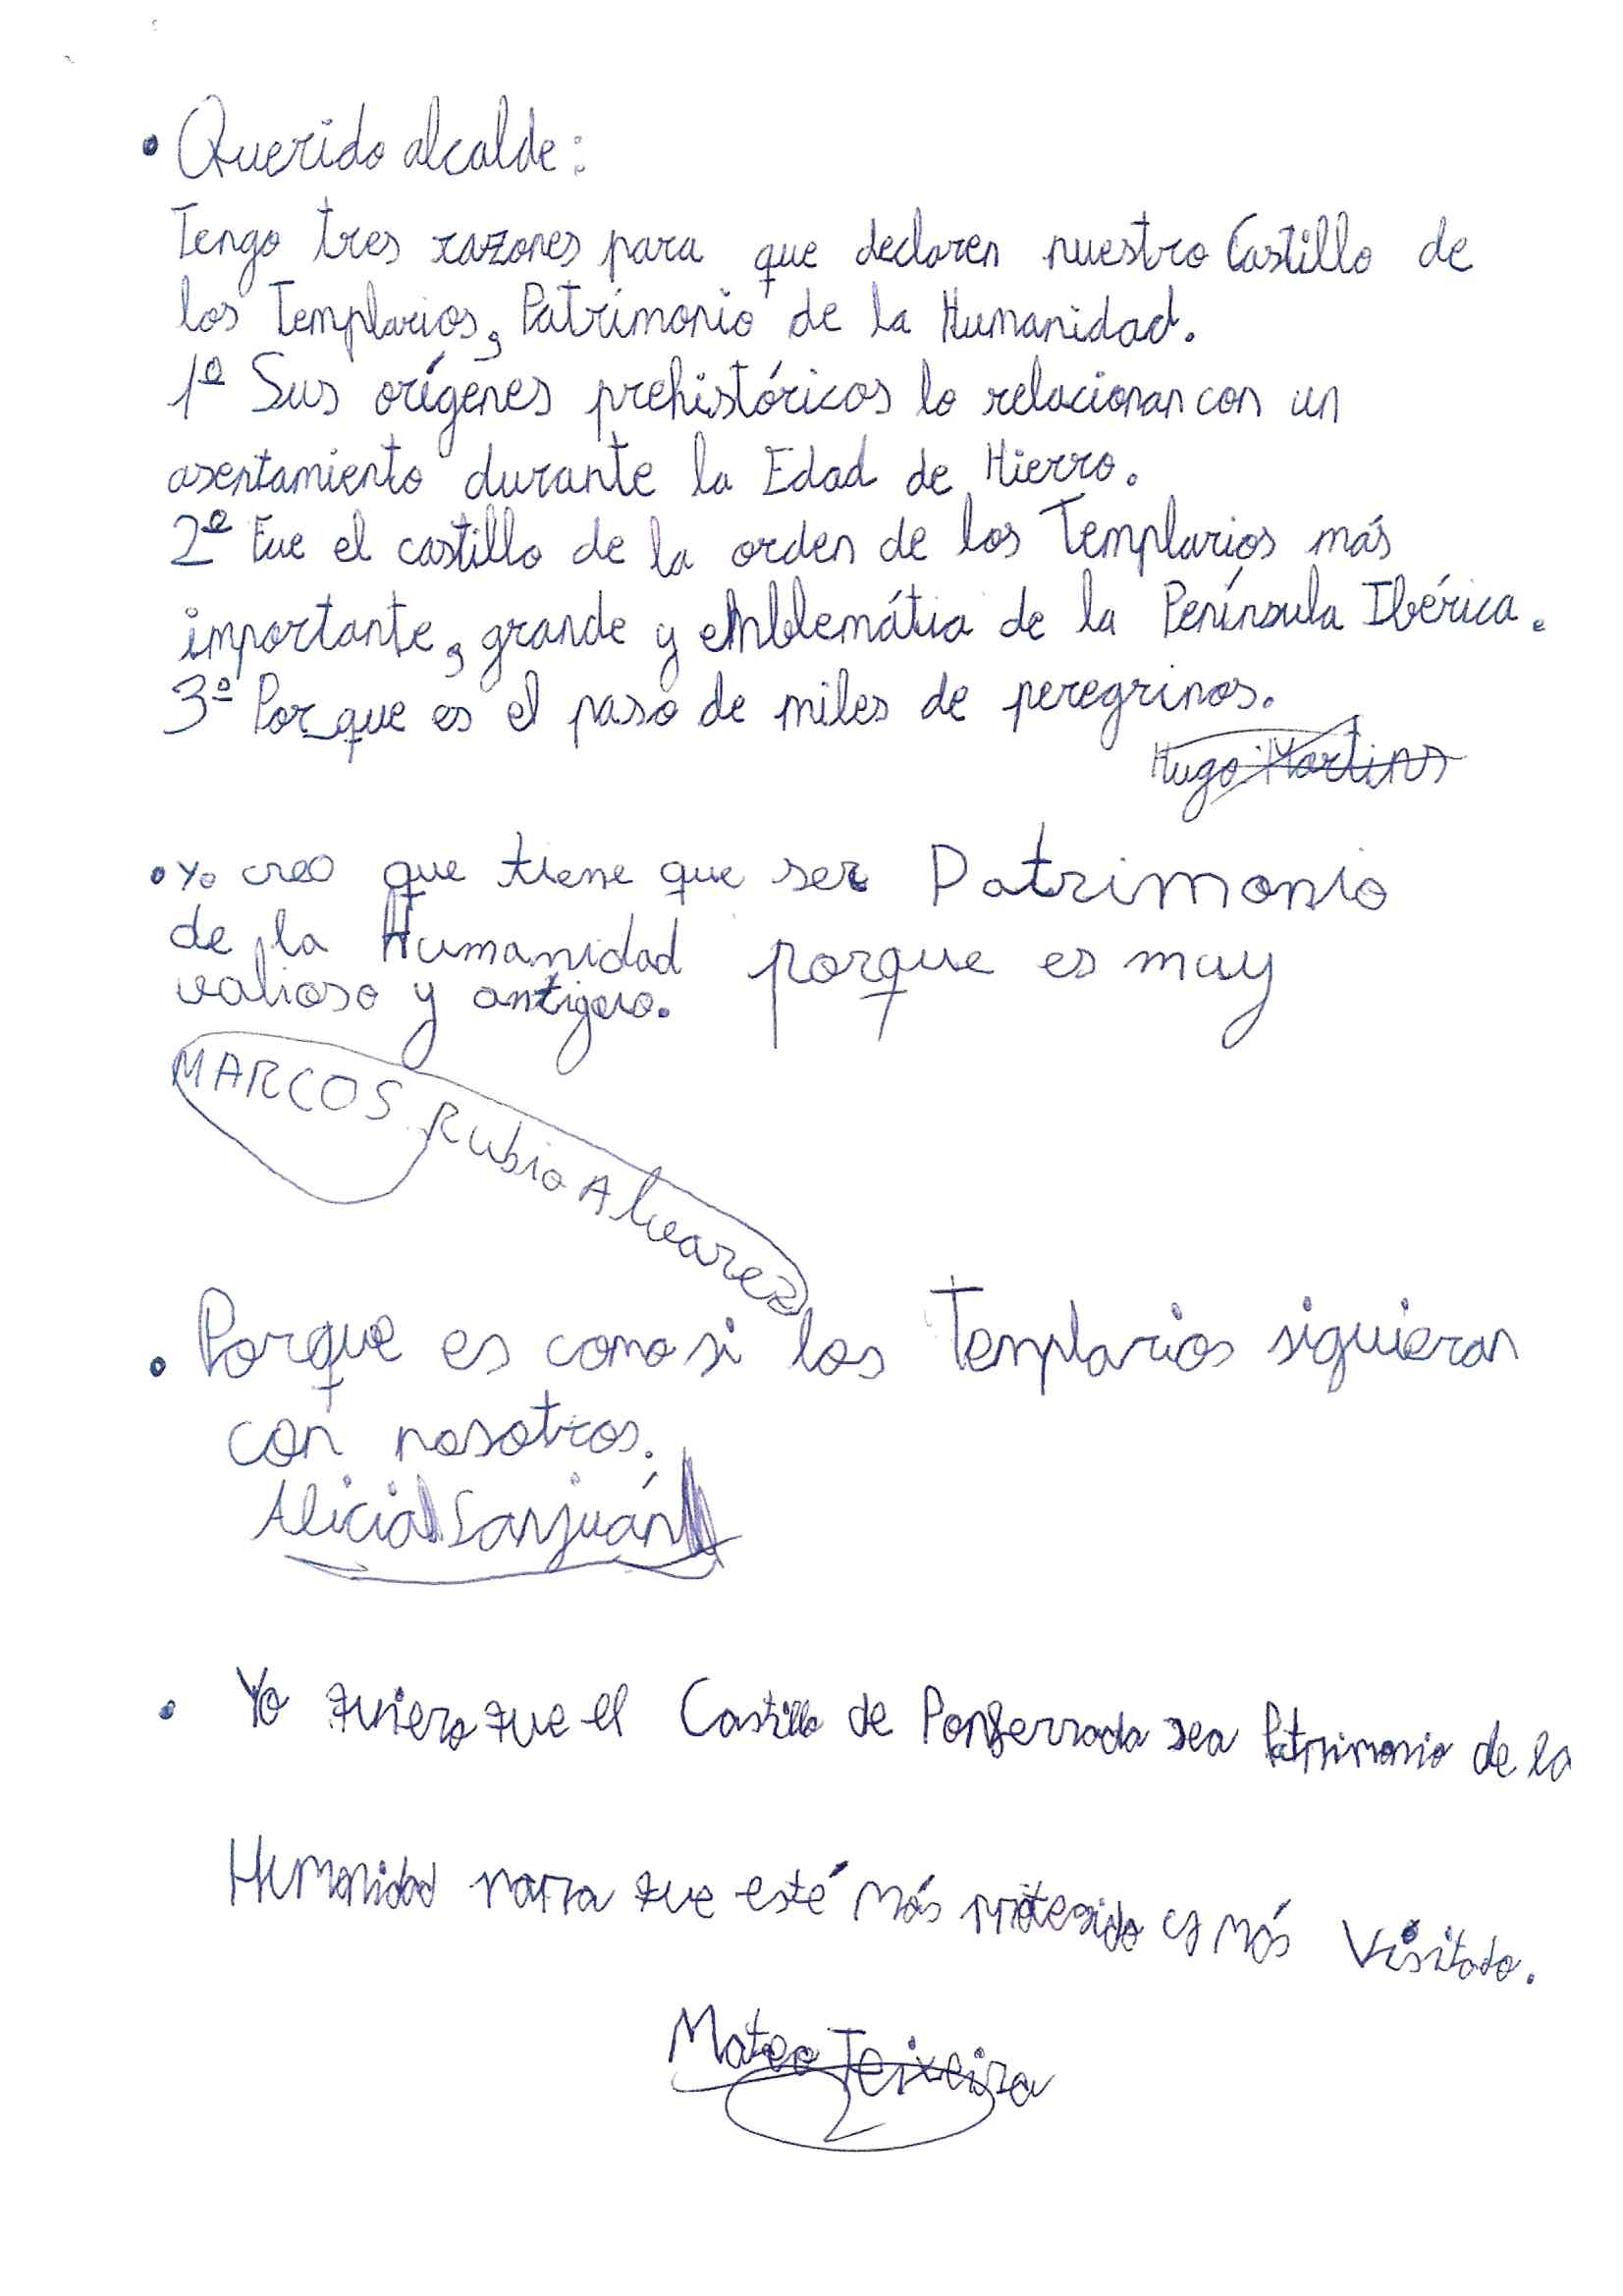 • Querido alcalde:
Tengo tres razones para que declaren nuestro Castillo de
los Templarios, Patrimonio de la Humanidad.
1º Sus orígenes prehistóricos lo relacionan con un
asentamiento durante la Edad de Hierro.
2º Fue el castillo de la orden de los Templarios más
importante, grande y emblemátia de la Península Ibérica.
3º Porque es el paso de miles de peregrinos.
Hugo Martins
• Yo creo que tiene que ser Patrimonio
de la Humanidad porque es muy
valioso y antiguo.
MARCOS Rubio Alvarez
• Porque es como si los Templarios siguieran
con nosotros.
Alicia Sanjuán
• Yo quiero que el Castillo de Ponferrada sea Patrimonio de la
Humanidad para que esté más protegido y más visitado.
Mateo Teixeira